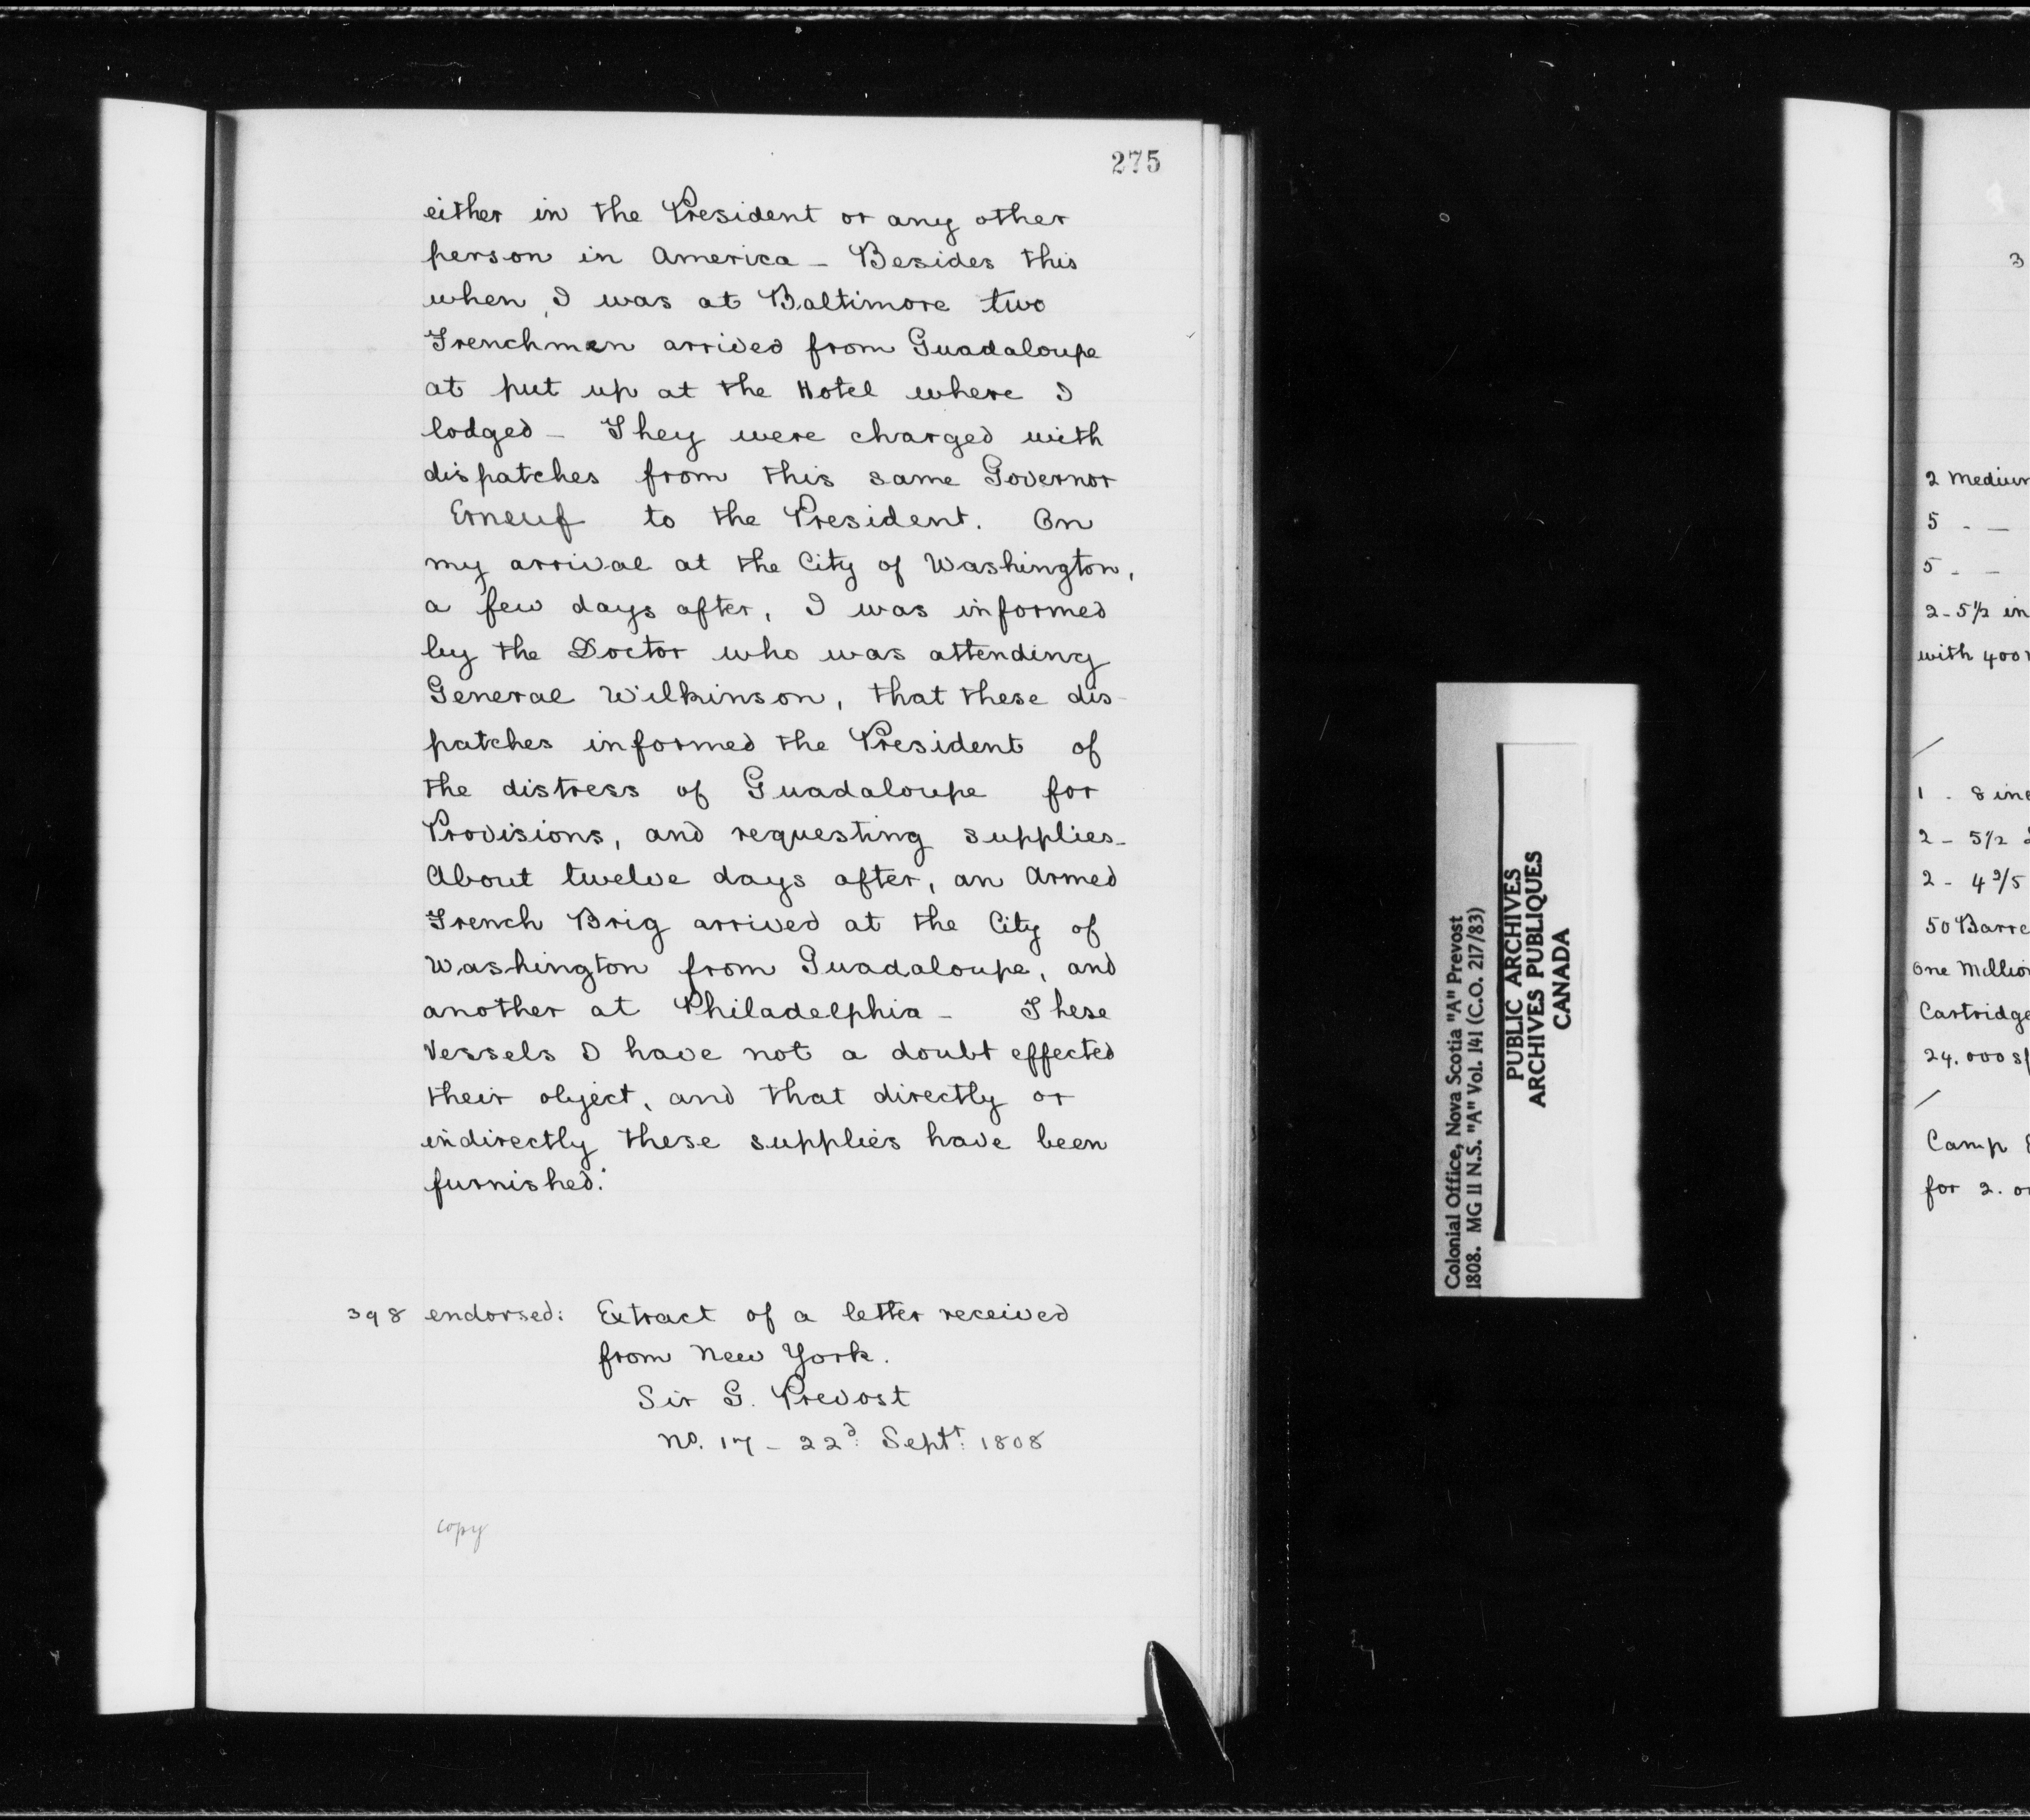 275
either in the President or any other
person in America - Besides this
when, I was at Baltimore two
Frenchmen arrived from Guadaloupe
at put up at the Hotel where I
lodged - They were charged with
dispatches from this same Governor
Erneuf to the President. On
my arrival at the City of Washington,
a few days after, I was informed
by the Doctor who was attending
General Wilkinson, that these dis-
patches informed the President of
the distress of Guadaloupe for
Provisions, and requesting supplies -
About twelve days after, an Armed
French Brig arrived at the City of
Washington from Guadaloupe, and
another at Philadelphia - These
Vessels I have not a doubt effected
their object, and that directly or
indirectly these supplies have been
furnished.
398 endorsed: Extract of a letter received
from New York.
Sir G. Prevost
No. 17 - 22d: Septr: 1808
copy
Colonial Office, Nova Scotia "A" Prevost
1808. MG 11 N.S. "A" Vol. 141 (C.O. 217/83)
PUBLIC ARCHIVES
ARCHIVES PUBLIQUES
CANADA
3
2 Medium
5 - —
5 - —
2 - 5 1/2 in
with 400
1 - 8 inc
2 - 5 1/2
2 - 4 2/5
50 Barre
One Million
Cartridge
24.000 sp
Camp
for 2. 0